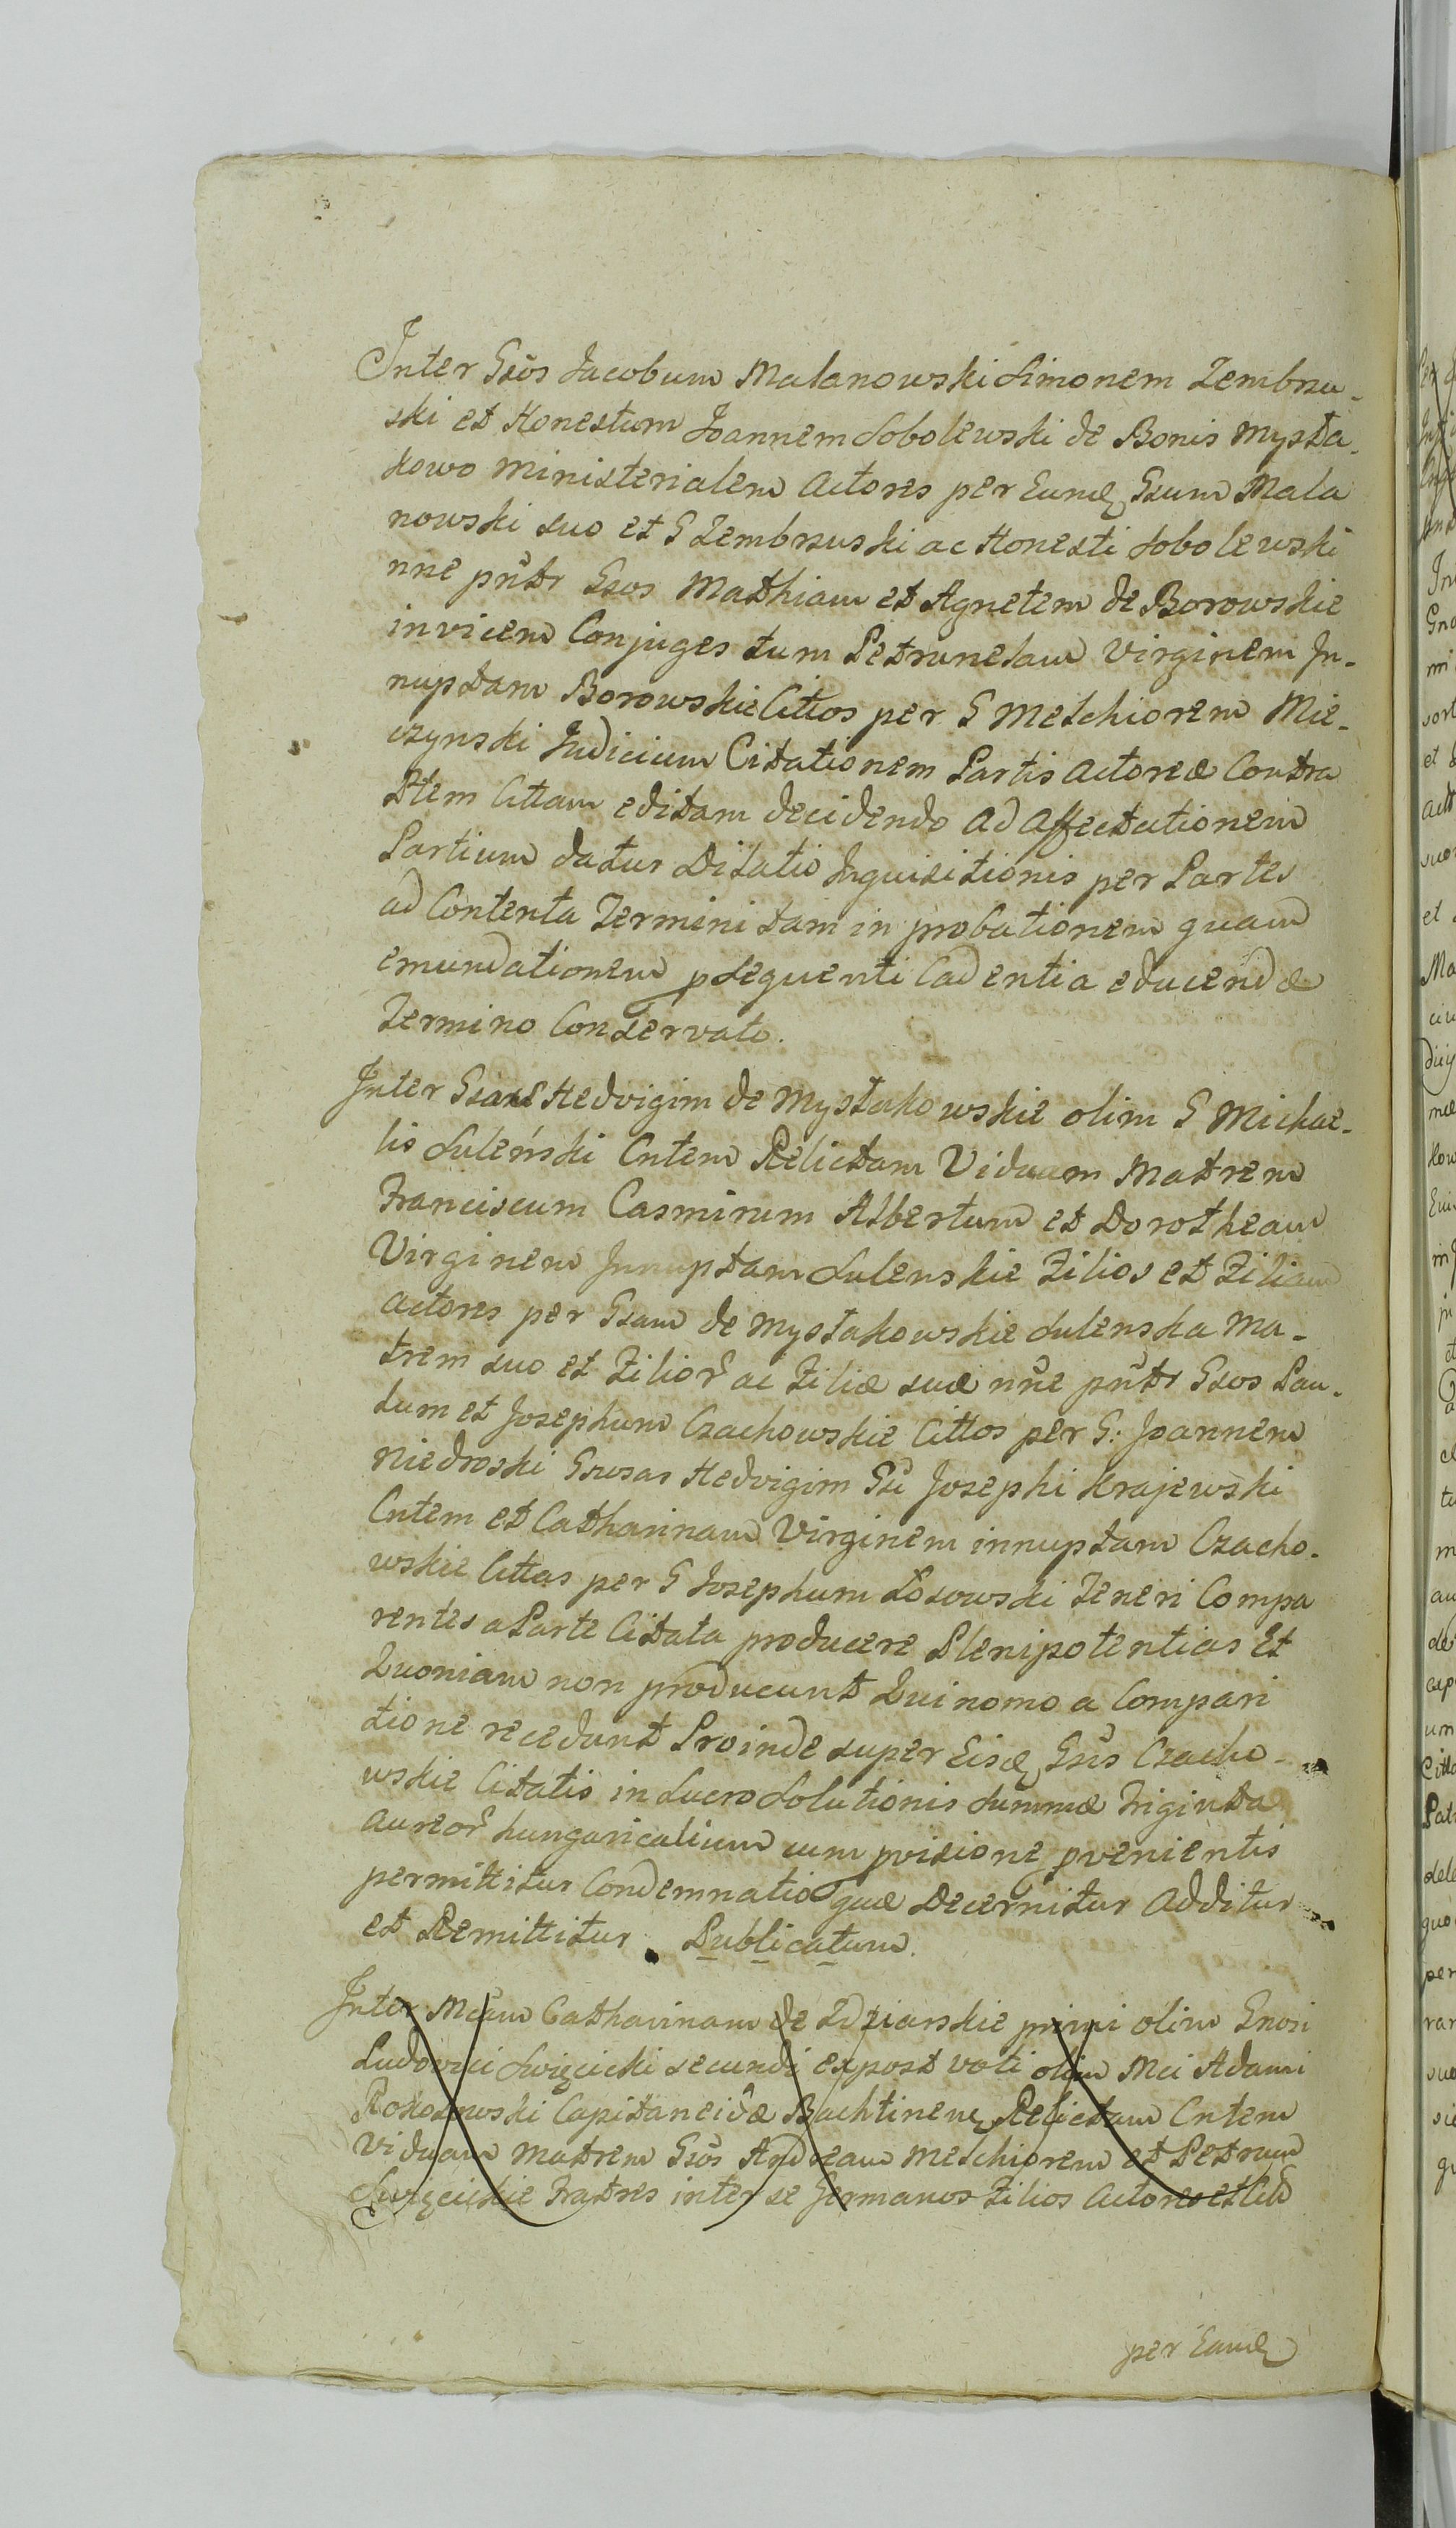 Inter Gsos Jacobum Malanowski Simonem Zembrzu-
ski et Honestum Joannem Sobolewski de Bonis Mysta-
kowo Ministerialem Actores per Eumd Gsum Mala
nowski suo et G Zembrzuski ac Honesti Sobolewski
nne pntr Gsos Mathiam et Agnetem de Borowskie
invicem Conjuges tum Petrunelam Virginem In-
nuptam Borowskie Cittos per G Melchiorem Mie-
czynski Judicium Citationem Partis Actoreæ Contra
Ptem Cittam editam decidendo ad Affectationem
Partium datur Dilatio Inquisitionis per Partes
ad Contenta Termini tam in probationem quam
emundationem p sequenti Cadentia educendæ
Termino Conservato.
Inter Hedvigim de Mystakowskie olim G Michae-
lis Suleński Cntem Relictam Viduam Matrem
Franciscum Casmirum Albertum et Dorotheam
Virginem Innuptam Sulenskie Filios et Filiam
Actores per Gsam de Mystakowskie Sulenska Ma-
trem suo et Filior ac Filiæ suæ nne pntr Gsos Pau-
lum et Josephum Czachowskie Cittos per G: Joannem
Niedroski Gsosas Hedvigim Gsi Josephi Krajewski
Cntem et Catharinam Virginem innuptam Czacho-
wskie Cittas per G Josephum Łosowski Teneri Compa
rentes a Parte Citata producere Plenipotentias Et
Quoniam non producunt Quinomo a Compari
tione recedunt Proinde super Eisd Gsis Czacho-
wskie Citatis in Lucro Solutionis Summæ Triginta
Aureor hungaricalium cum pvisione pvenientis
permittitur Condemnatio quæ Decernitur Additur
et Remittitur. Publicatum.
Inter Mcam Catharinam de Zdziarskie primi olim Gnosi
Ludovici Święcicki secundi expost voti olim Mci Adami
Rokosowski Capitaneidæ Relictam Cntem
Viduam Matrem Gsos Andream Melchiorem et Petrum
Święcickie Fratres inter se Germanos Filios Actores et
per Eamd